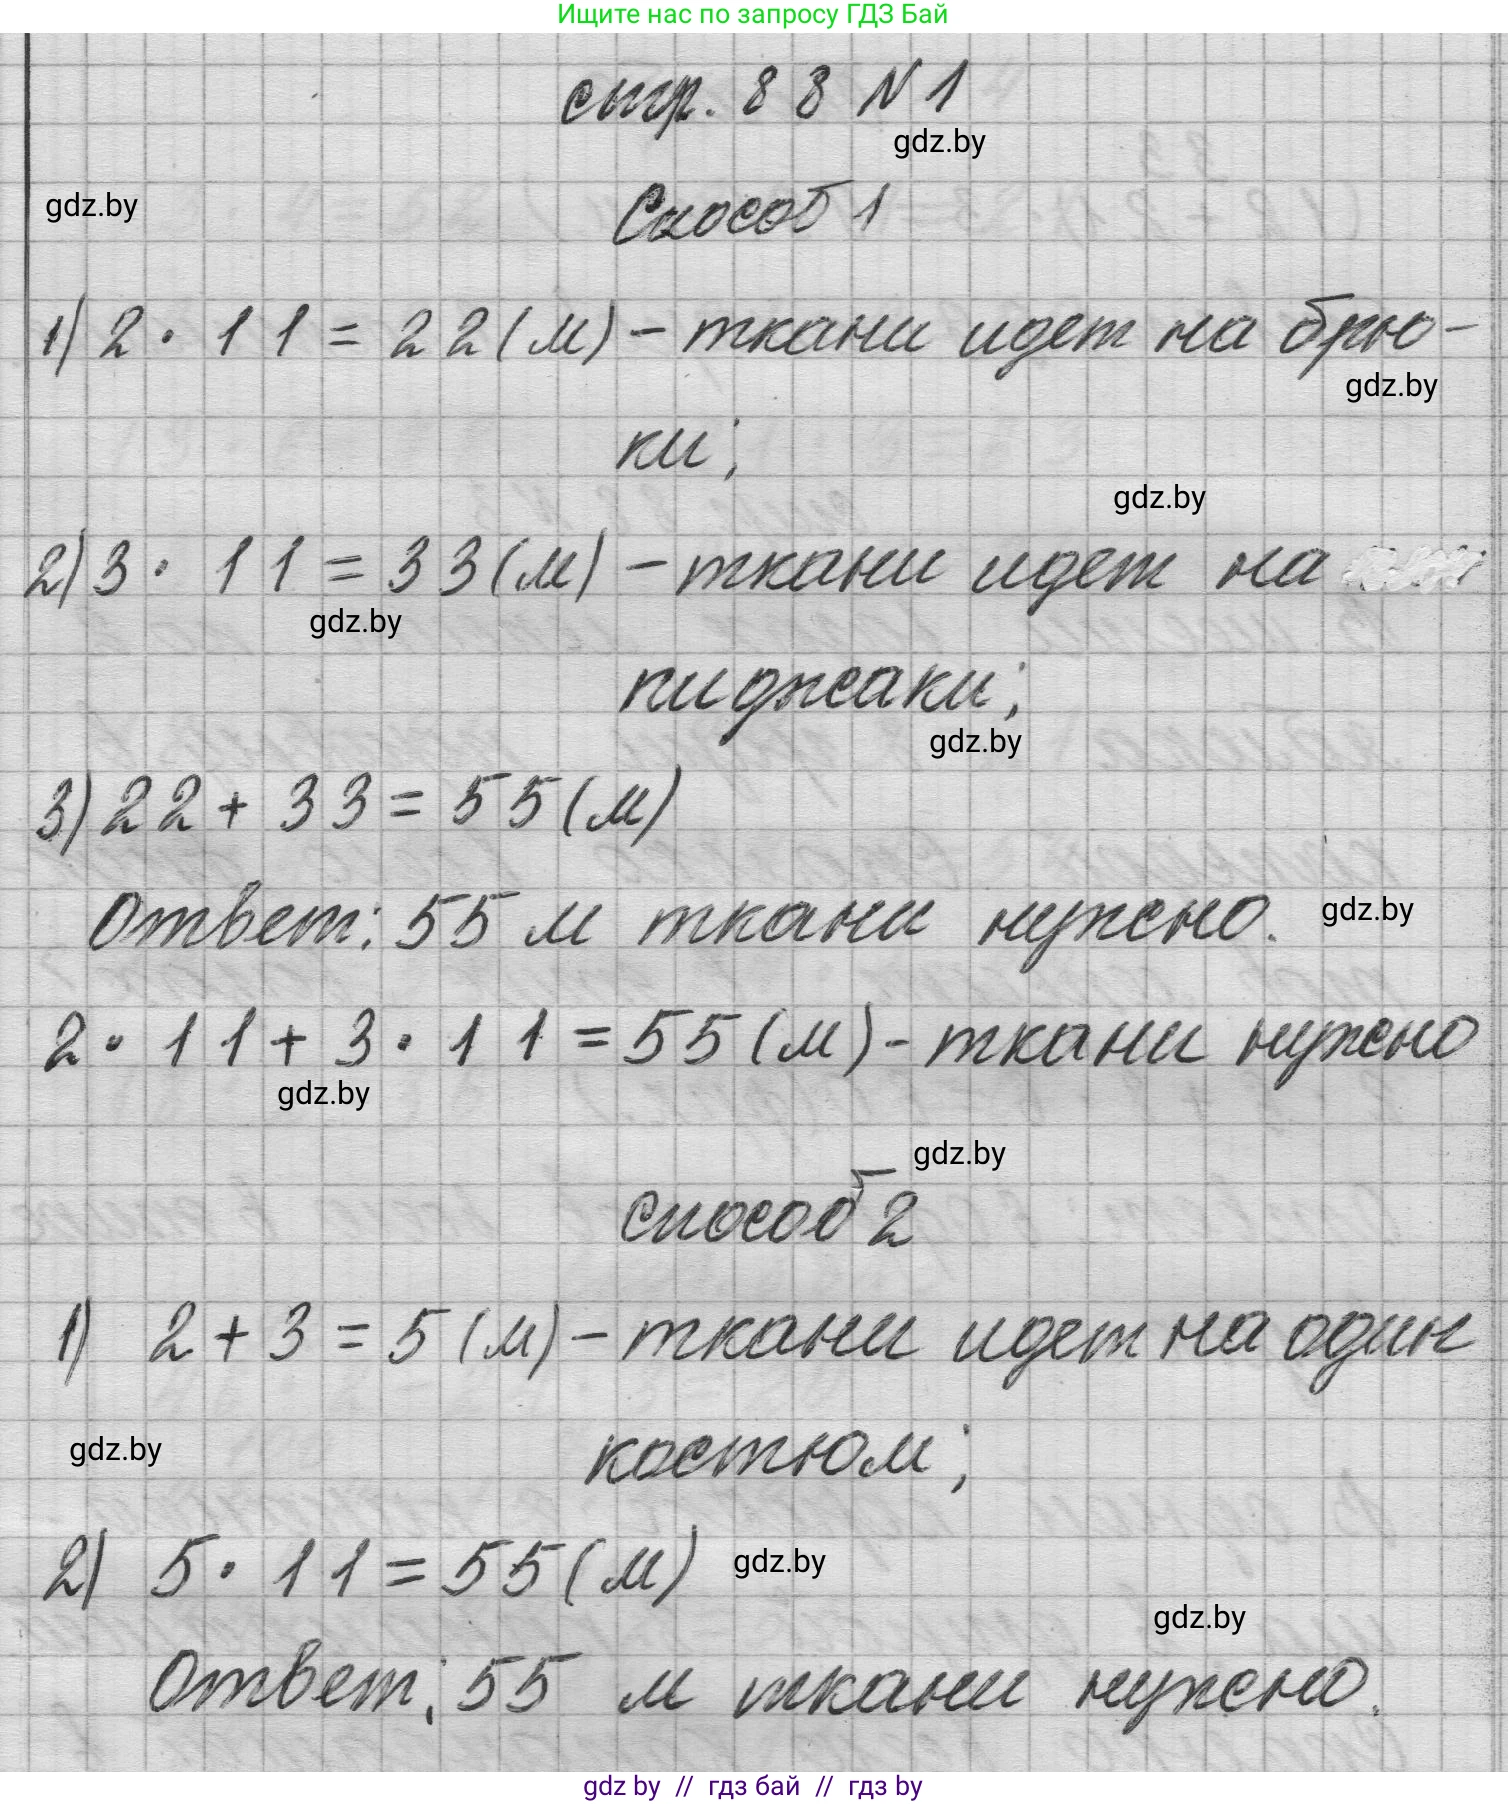 Ищите нас по запросу ГДЗ Бай
стр. 88 N 1
gdz.by
gdz.by
Способ 1
1) 2 · 11 = 22 (м) - ткани идет на брю-
gdz.by
ки;
gdz.by
2) 3 · 11 = 33 (м) - ткани идет на
gdz.by
пиджаки;
gdz.by
3) 22 + 33 = 55 (м)
Ответ: 55 м ткани нужно.
gdz.by
2 · 11 + 3 · 11 = 55 (м) - ткани нужно
gdz.by
gdz.by
способ 2
1) 2 + 3 = 5 (м) - ткани идет на один
gdz.by
костюм;
2) 5 · 11 = 55 (м)
gdz.by
gdz.by
Ответ: 55 м ткани нужно.
gdz by // гдз бай // гдз by